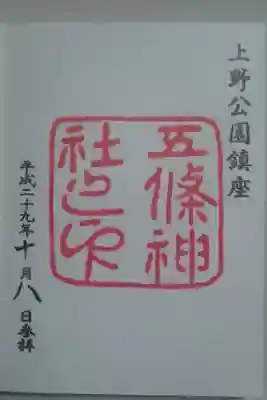 上野公園鎮座
五條神
社之印
平成二十九年十月八日参拝